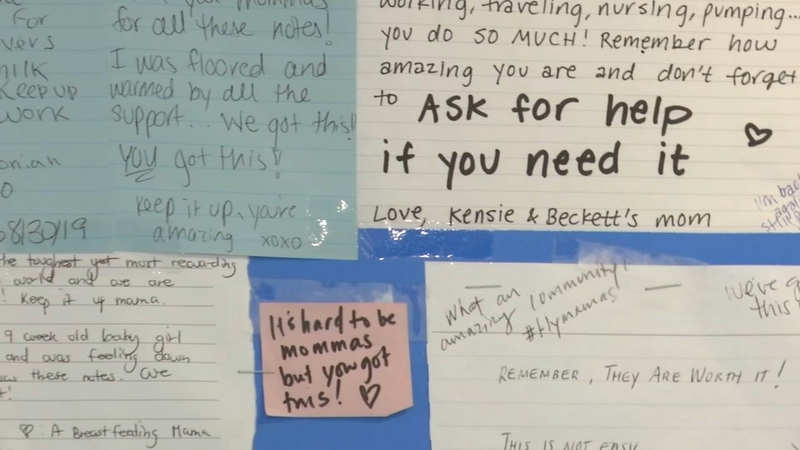 For
vers
milk
keep up
work
onian
08/30/19
for all these notes!
I was floored and
warmed by all the
support... We got this!
YOU got this!
Keep it up, you're
amazing xoxo
working, traveling, nursing, pumping...
you do SO MUCH! Remember how
amazing you are and don't forget
to ASK for help
if you need it
Love, Kensie & Beckett's mom
I'm back
again
still
the toughest yet most rewarding
world and we are
! Keep it up mama.
9 week old baby girl
and was feeling down
these notes. We
♡. A Breastfeeding Mama
It's hard to be
mommas
but you got
this! ♡
What an
amazing community!
#flymamas
we've g
this
REMEMBER, THEY ARE WORTH IT!
THIS IS NOT EASY